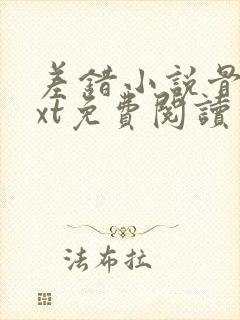 差錯小說骨
xt免費閱讀
法布拉